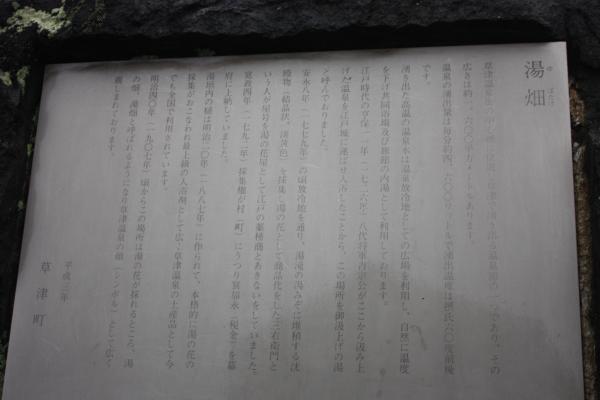 湯畑
ゆ ばたけ
草津温泉
広さは約一、六〇〇平方メートルあります。
温泉の湧出量は毎分約四、六〇〇リットルで湧出温度は摂氏六〇度前後
です。
湧き出た高温の温泉水は温泉放冷地としての広場を利用し、自然に温度
を下げ共同浴場及び旅館の内湯として利用しております。
江戸時代の享保一一年(一七二六年)八代将軍吉宗公がここから汲み上
げた温泉を江戸城に運ばせ入浴したことから、この場所を御汲上げの湯
と呼んでおりました。
安永八年(一七七九年)の頃放冷地を通り、湯滝の湯みぞに堆積する沈
澱物(結晶状、淡黄色)を採集し湯の花として商品化をした三右衛門と
いう人が屋号を湯の花屋として江戸の薬種商とあきないをしていました。
寛政四年(一七九二年)採集権が村(町)にうつり冥加永(税金)を幕
府に上納していました。
湯畑内の樋は明治二〇年(一八八七年)に作られて、本格的に湯の花の
採集がおこなわれ最上級の入浴剤として広く草津温泉の土産品として今
でも全国で利用されています。
明治四〇年(一九〇七年)頃からこの場所は湯の花が採れるところ、湯
の畑、湯畑と呼ばれるようになり草津温泉の顔(シンボル)として広く
親しまれております
平成三年
草津町